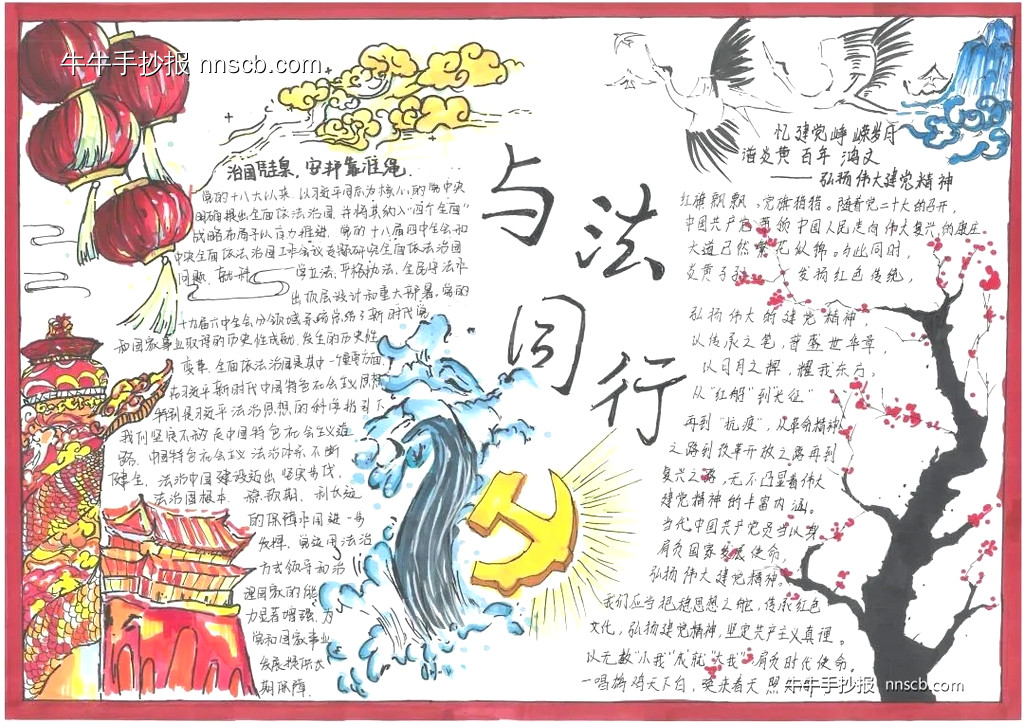 牛牛手抄报 nnscb.com
与法
同行
安邦靠准绳
党的十八大以来,以习近平同志为核心的党中央
明确提出全面依法治国,并将其纳入“四个全面”
战略布局予以有力推进。党的十八届四中全会和
中央全面依法治国工作会议专题研究全面依法治国
问题,就科学立法,严格执法,全民守法作
出顶层设计和重大部署。党的
十九届六中全会
和国家事业取得的历史性成就,发生的历史性
变革,全面依法治国是其中一个重要方面
在习近平新时代中国特色社会主义思想
特别是习近平法治思想的科学指引下
我们坚定不移走中国特色社会主义道
路,中国特色社会主义法治体系不断
健全,法治中国建设迈出坚实步伐,
法治固根本,稳预期,利长远
的保障作用进一步
发挥,党运用法治
方式领导和治
理国家的能
力显著增强,为
党和国家事业
发展提供长
期保障.
忆建党峥嵘岁月
谱炎黄百年鸿文
——弘扬伟大建党精神
红旗飘飘,党旗猎猎。随着党二十大的召开,
中国共产党带领中国人民走向伟大复兴的康庄
大道已然繁花似锦。与此同时,
炎黄子孙 发扬红色传统,
弘扬伟大的建党精神,
以传承之笔,普盛世华章,
以日月之辉,耀我东方。
从“红船”到“长征”
再到“抗疫”,从革命精神
之路到改革开放之路再到
复兴之路,无不凸显着伟大
建党精神的丰富内涵。
当代中国共产党员当以身
肩负国家发展使命,
弘扬伟大建党精神。
我们应当把稳思想之舵,传承红色
文化,弘扬建党精神,坚定共产主义真理。
以无数“小我”成就“大我”,肩负时代使命。
一唱雄鸡天下白,
牛牛手抄报 nnscb.com